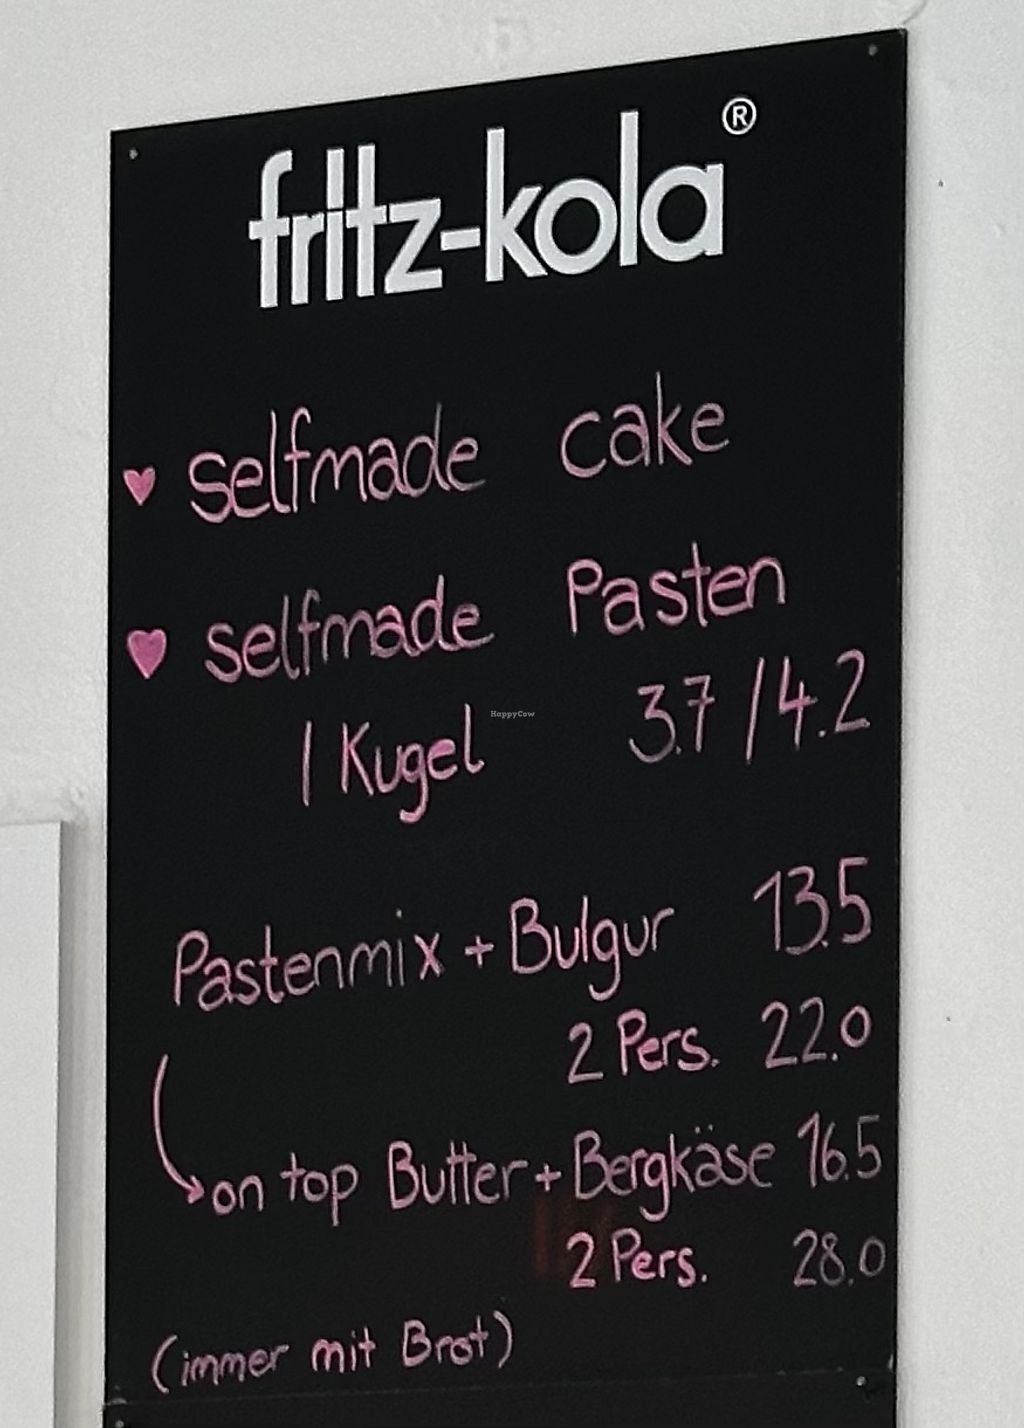 fritz-kola®
♥ selfmade cake
♥ selfmade Pasten
1 Kugel 3.7 / 4.2
HappyCow
Pastenmix + Bulgur 13.5
2 Pers. 22.0
on top Butter + Bergkäse 16.5
2 Pers. 28.0
(immer mit Brot)